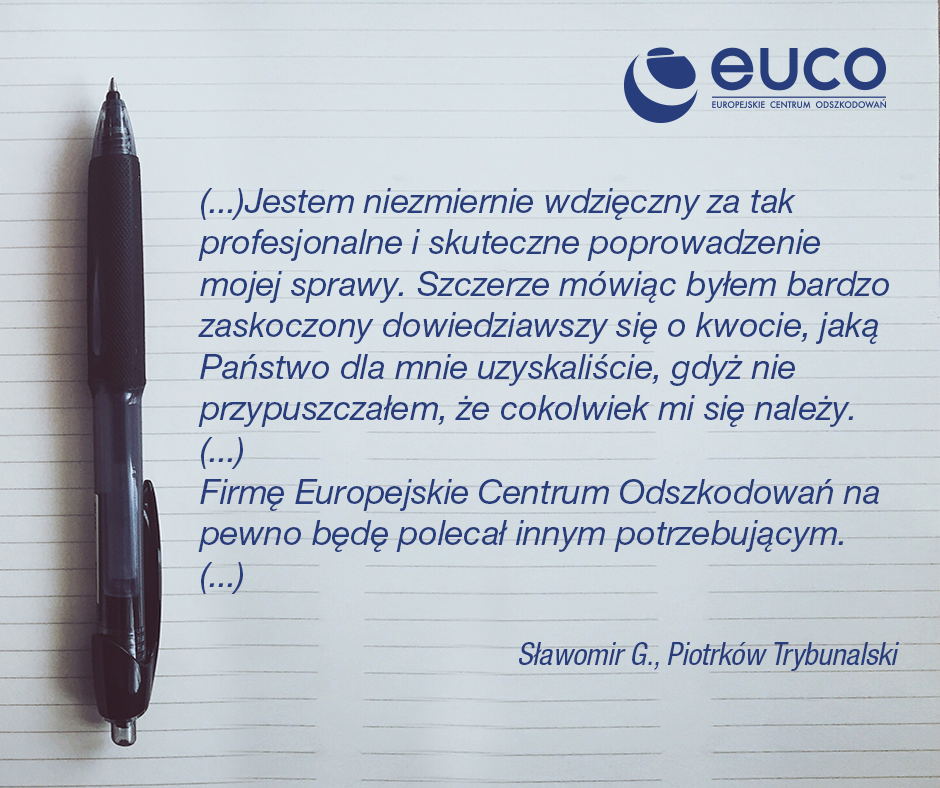 euco
EUROPEJSKIE CENTRUM ODSZKODOWAŃ
(...)Jestem niezmiernie wdzięczny za tak
profesjonalne i skuteczne poprowadzenie
mojej sprawy. Szczerze mówiąc byłem bardzo
zaskoczony dowiedziawszy się o kwocie, jaką
Państwo dla mnie uzyskaliście, gdyż nie
przypuszczałem, że cokolwiek mi się należy.
(...)
Firmę Europejskie Centrum Odszkodowań na
pewno będę polecał innym potrzebującym.
(...)
Sławomir G., Piotrków Trybunalski